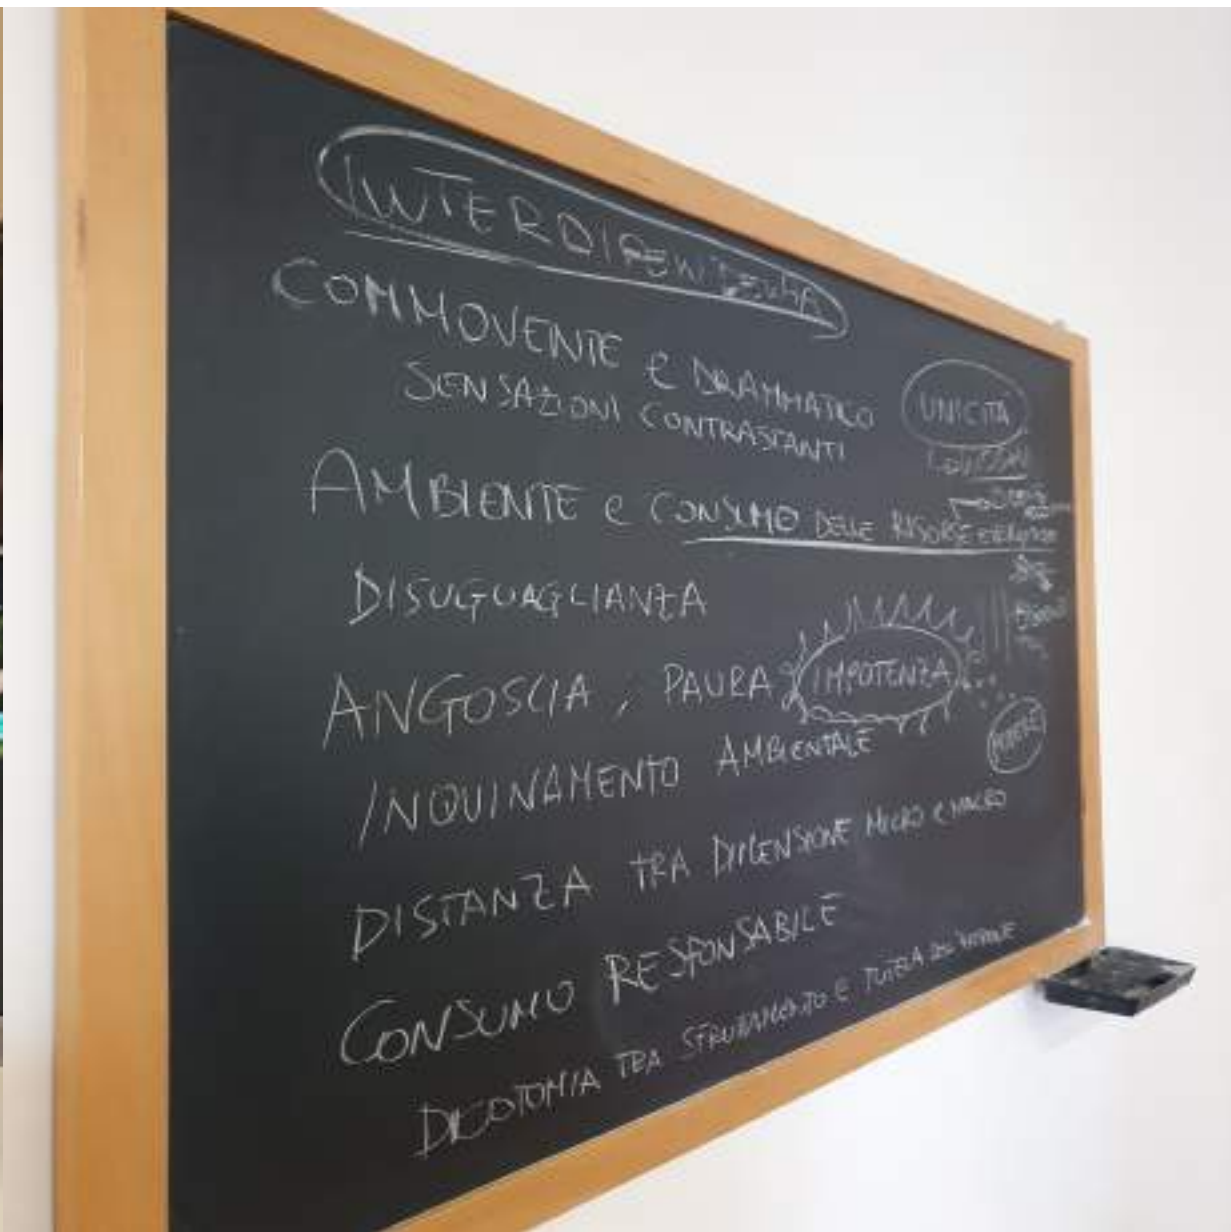 INTERDIPENDENZA
COMMOVENTE e DRAMMATICO
SENSAZIONI CONTRASTANTI
UNICITÀ
AMBIENTE e CONSUMO DELLE RISORSE
DISUGUAGLIANZA
ANGOSCIA, PAURA IMPOTENZA
INQUINAMENTO AMBIENTALE
DISTANZA TRA DIMENSIONE MICRO e MACRO
CONSUMO RESPONSABILE
DICOTOMIA TRA SFRUTTAMENTO E TUTELA